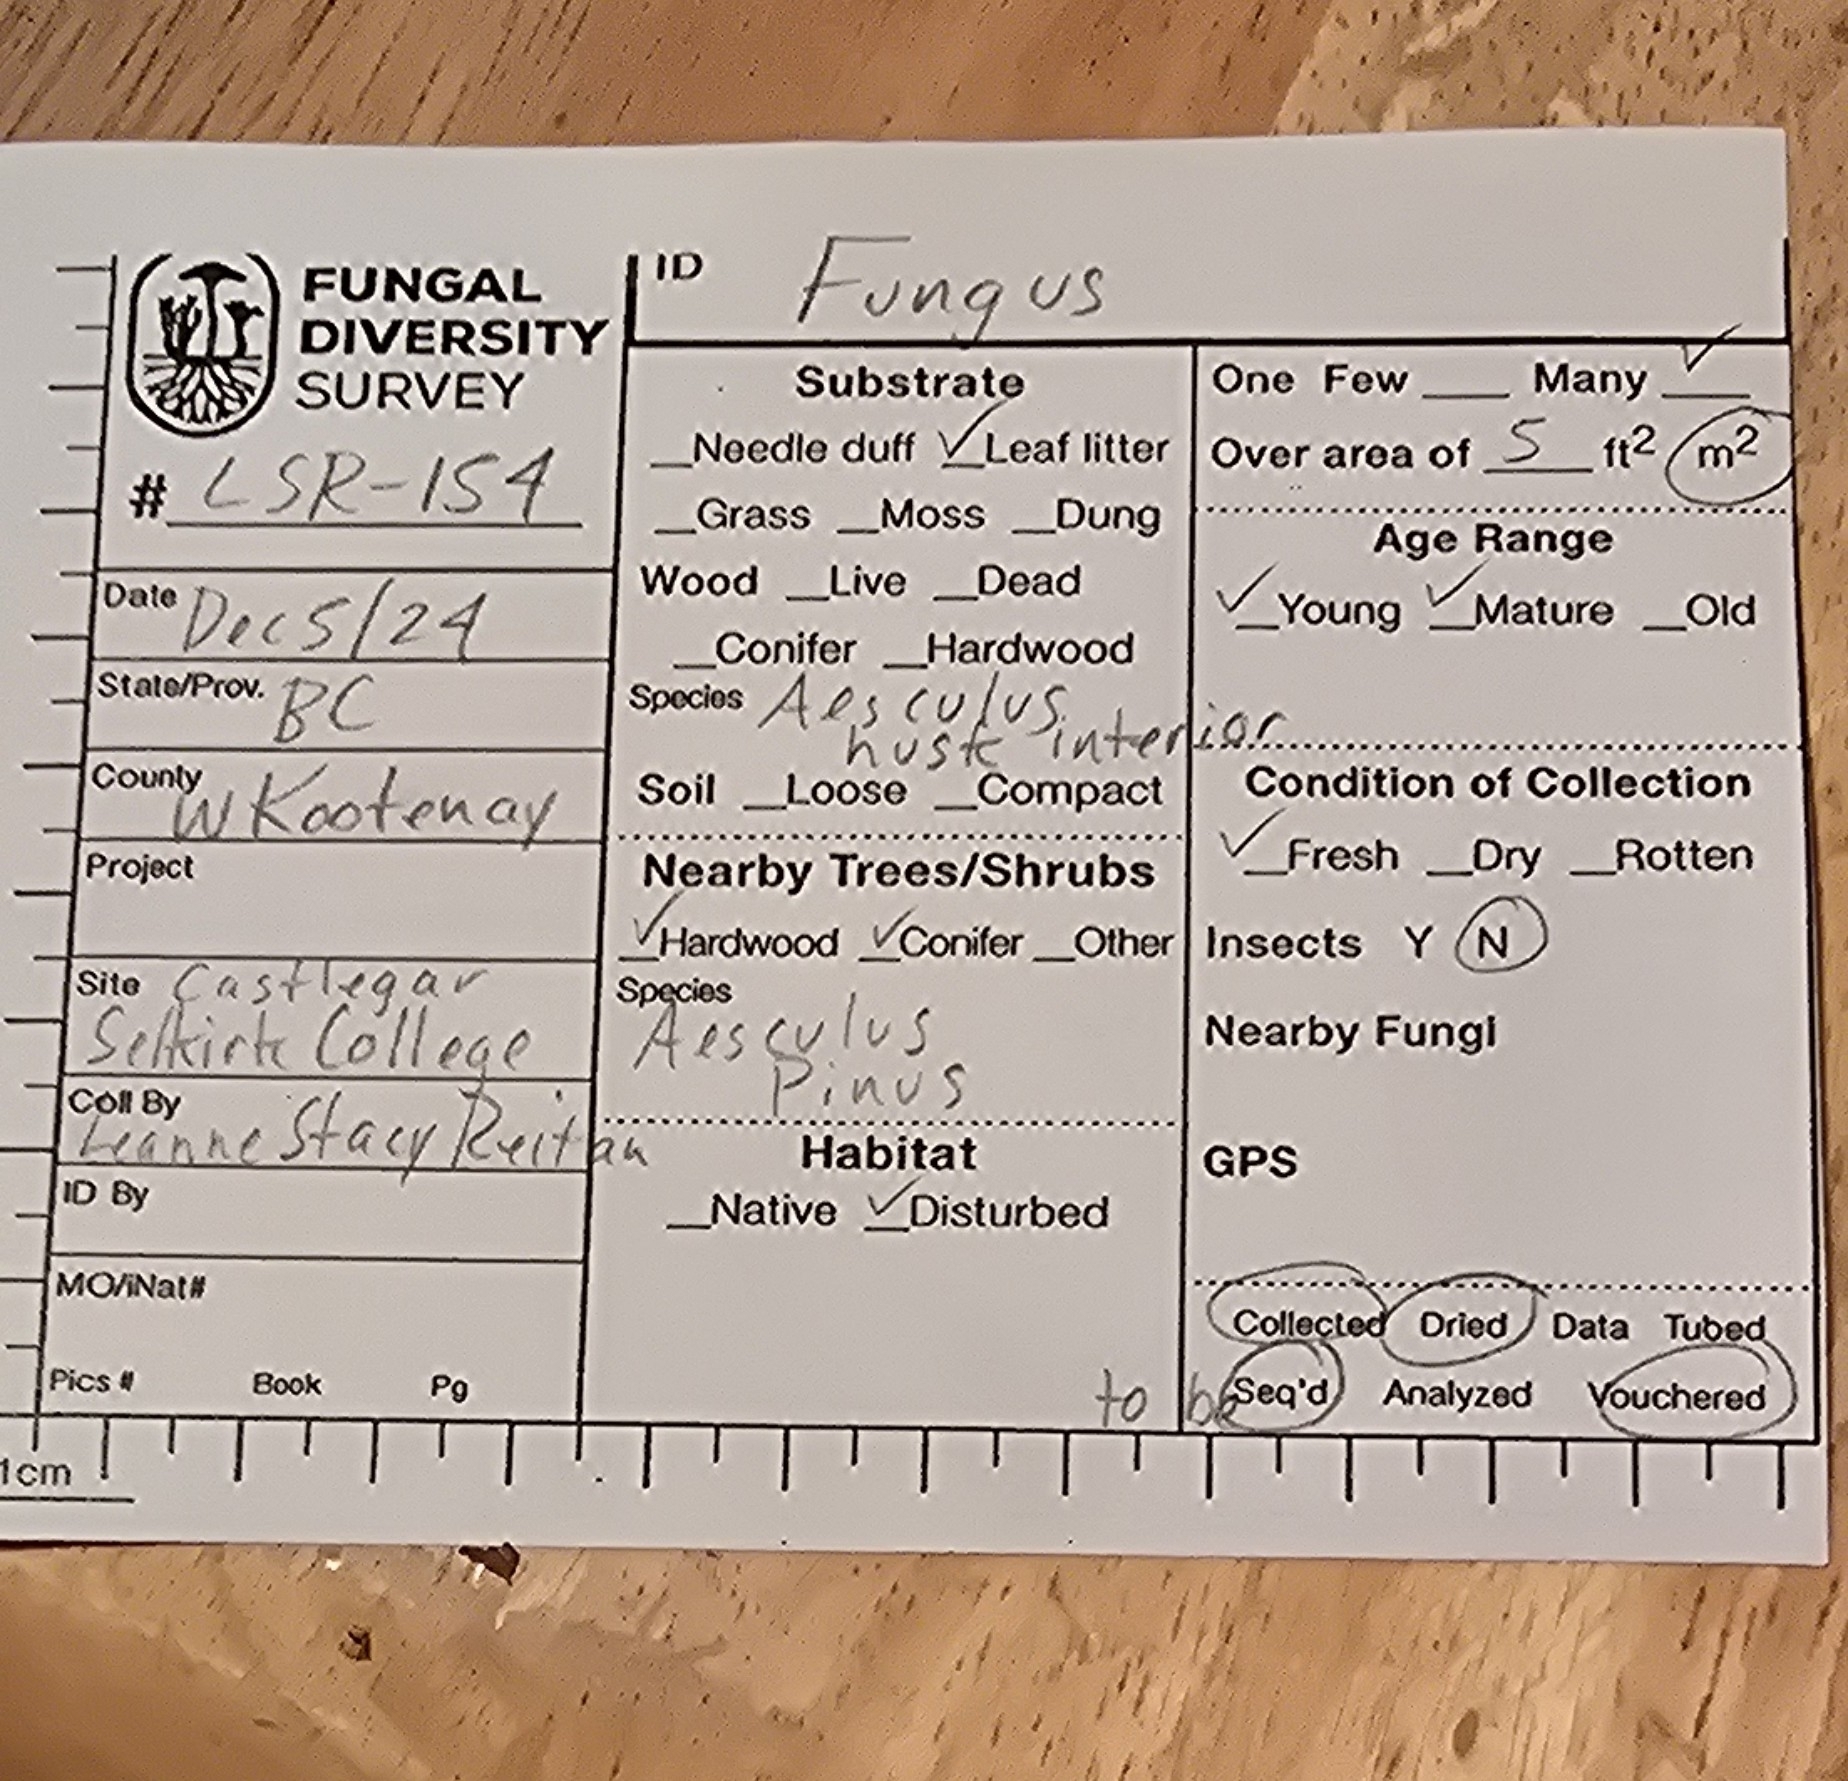 FUNGAL
DIVERSITY
SURVEY
# LSR-154
Date Dec 5/24
State/Prov. BC
County W Kootenay
Project
Site Castlegar
Selkirk College
Coll By
Leanne Stacy Reitan
ID By
MO/iNat#
Pics # Book Pg
1cm
ID Fungus
Substrate
__Needle duff ✓Leaf litter
__Grass __Moss __Dung
Wood __Live __Dead
__Conifer __Hardwood
Species Aesculus
husk interior
Soil __Loose __Compact
Nearby Trees/Shrubs
✓Hardwood ✓Conifer __Other
Species
Aesculus
Pinus
Habitat
__Native ✓Disturbed
One Few ___ Many ✓
Over area of 5 ft² m²
Age Range
✓Young ✓Mature __Old
Condition of Collection
✓Fresh __Dry __Rotten
Insects Y N
Nearby Fungi
GPS
Collected Dried Data Tubed
to be Seq'd Analyzed Vouchered